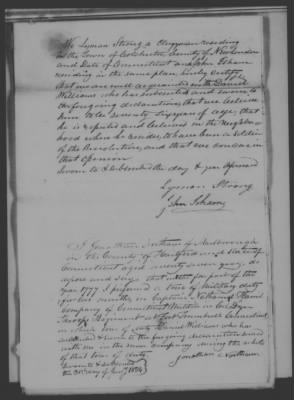 We Lyman Strong a Clergyman residing
in the Town of Colchester County of New London
and State of Connecticut and John Isham
residing in the same place, hereby certify
that we are well acquainted with Daniel
Williams who has subscribed and sworn to
the foregoing declaration, that we believe
him to be seventy six years of age, that
he is reputed and believed in the neighbor
hood where he resides, to have been a soldier
of the Revolution, and that we concur in
that opinion
Sworn to & subscribed the day & year aforesaid
Lyman Strong
John Isham
I Jonathan Northam of Marlborough
in the County of Hartford and State of
Connecticut aged seventy seven years, de
pose and say that in the fore part of the
year 1777 I performed a tour of military duty
for two months, in Captain
Company of Connecticut Militia in Col.
Regiment at Fort Trumbull Connecticut
in which tour of duty Daniel Williams who has
subscribed & sworn to the foregoing declaration served
with me in the same company during the whole
of that tour of duty
Sworn to & subscribed
the day of 1834
Jonathan Northam